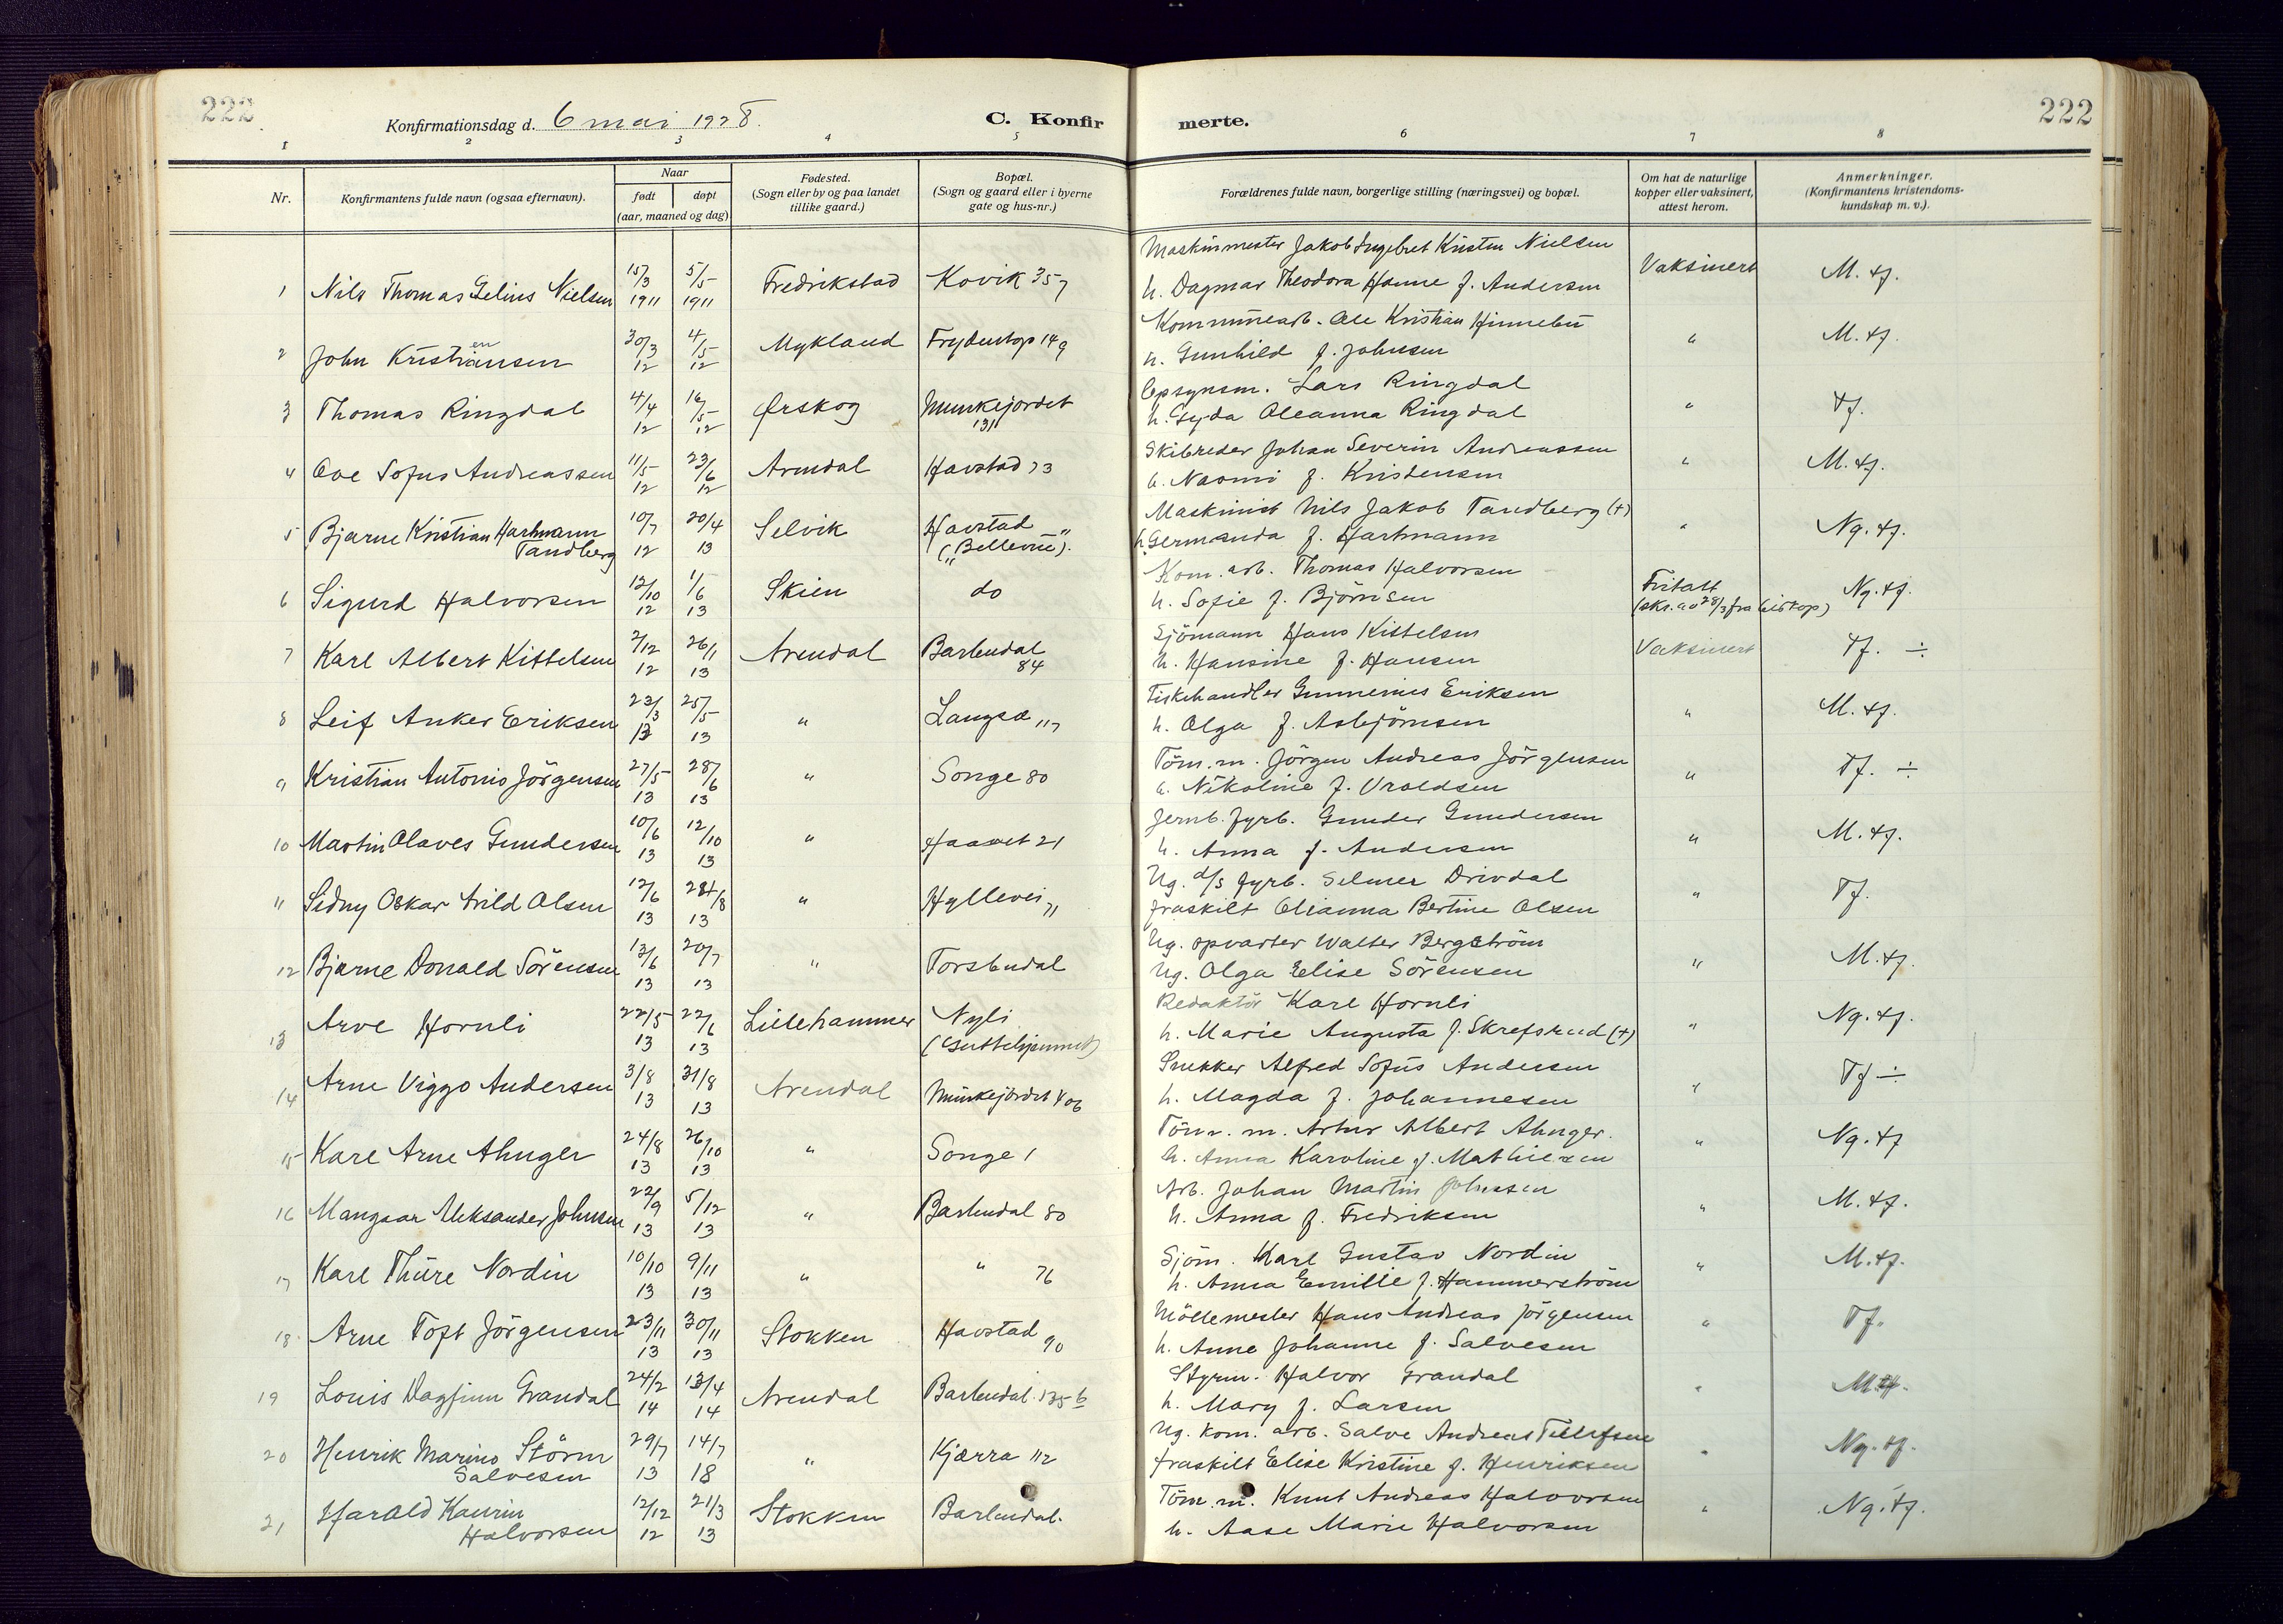 222
222
Konfirmationsdag d. 6 mai 1928.
C. Konfirmerte.
1 2 3 4 5 6 7 8
Nr.
Konfirmantens fulde navn (ogsaa efternavn).
Naar
født
døpt
(aar, maaned og dag)
Fødested.
(Sogn eller by og paa landet
tillike gaard.)
Bopæl.
(Sogn og gaard eller i byerne
gate og hus-nr.)
Forældrenes fulde navn, borgerlige stilling (næringsvei) og bopæl.
Om hat de naturlige
kopper eller vaksinert,
attest herom.
Anmerkninger.
(Konfirmantens kristendoms-
kundskap m. v.).
1 Nils Thomas Gelius Nielsen 15/3 1911 5/5 1911 Fredrikstad Kovik 357 Maskinmester Jakob Ingebret Kristen Nielsen
h. Dagmar Theodora Hanne f. Andersen Vaksinert M. tf.
2 John Kristiansen en 30/3 12 4/5 12 Mykland 149 Kommunearb. Ole Kristian Hinnebu
h. Gunhild f. Johnsen " M. tf.
3 Thomas Ringdal 4/4 12 16/5 12 Ørskog Munkejordet 131 Opsynsm. Lars Ringdal
h. Gyda Oleanna Ringdal " tf.
4 Ove Sofus Andreassen 11/5 12 23/6 12 Arendal Havstad 73 Skibreder Johan Severin Andreassen
h. Naomi f. Kristensen " M. tf.
5 Bjarne Kristian Hartmann
Tandberg 10/7 12 20/4 13 Selvik Havstad
("Bellevue"). Maskinist Nils Jakob Tandberg (+)
h. Germanda f. Hartmann " Ng. tf.
6 Sigurd Halvorsen 12/10 12 1/6 13 Skien do Kom. arb. Thomas Halvorsen
h. Sofie f. Björnsen Fritatt
(skr. av 28/3 fra biskop) Ng. tf.
7 Karl Albert Kittelsen 2/12 12 26/1 13 Arendal Barbudal 84 Sjömann Hans Kittelsen
h. Hansine f. Hansen Vaksinert Tf. ÷
8 Leif Anker Eriksen 23/3 13 25/5 13 " Langsæ 117 Fiskehandler Gunnenius Eriksen
h. Olga f. Asbjörnsen " M. tf.
9 Kristian Antonio Jörgensen 27/5 13 28/6 13 " Songe 80 Töm. m. Jörgen Andreas Jörgensen
h. Nikoline f. Uroldsen " Tf. ÷
10 Martin Olaves Gundersen 10/6 13 12/10 13 " 21 Jernb. fyrb. Gunder Gundersen
h. Anna f. Andersen " M. tf.
11 Sidny Oskar Arild Olsen 12/6 13 24/8 13 " Hyllevei 71 Ug. d/s fyrb. Selmer Drivdal
fraskilt Olianna Bertine Olsen " Tf.
12 Bjarne Donald Sörensen 13/6 13 20/7 13 " Torsbudal Ug. opvarter Walter Bergström
Ug. Olga Elise Sörensen " M. tf.
13 Arve Hornli 22/5 13 22/6 13 Lillehammer Nyli
(Guttehjemmet) Redaktör Karl Hornli
h. Marie Augusta f. Skrefsrud (+) " Ng. tf.
14 Arne Viggo Andersen 3/8 13 31/8 13 Arendal Munkejordet 406 Snekker Alfred Sofus Andersen
h. Magda f. Johannesen " Tf ÷
15 Kare Arne Ahnger 24/8 13 26/10 13 " Songe 1 Töm. m. Artur Albert Ahnger.
h. Anna Karoline f. Mathiesen " Ng. tf
16 Mangaar Aleksander Johnsen 22/9 13 5/12 13 " Barbudal 80 Arb. Johan Martin Johnsen
h. Anna f. Fredriksen " M. tf.
17 Karl Thure Nordin 10/10 13 9/11 13 " " 76 Sjöm. Karl Gustav Nordin
h. Anna Emilie f. Hammerström " M. tf.
18. Arne Toft Jörgensen 23/11 13 30/11 13 Stokken Havstad 90 Möllemester Hans Andreas Jörgensen
h. Anne Johanne f. Salvesen " Tf.
19 Louis Dagfinn Grandal 24/2 14 13/4 14 Arendal Barbudal. 135 b Styrm. Halvor Grandal
h. Mary f. Larsen " M tf.
20 Henrik Marino Störm
Salvesen 29/7 13 14/7 18 " Kjærra 112 Ug. kom. arb. Salve Andreas Tellefsen
fraskilt Elise Kristine f. Henriksen " Ng. tf.
21 Harald Kaurin
Halvorsen 12/12 12 21/3 13 Stokken Barbudal. Töm. m. Knut Andreas Halvorsen
h. Aase Marie Halvorsen " Ng. tf.